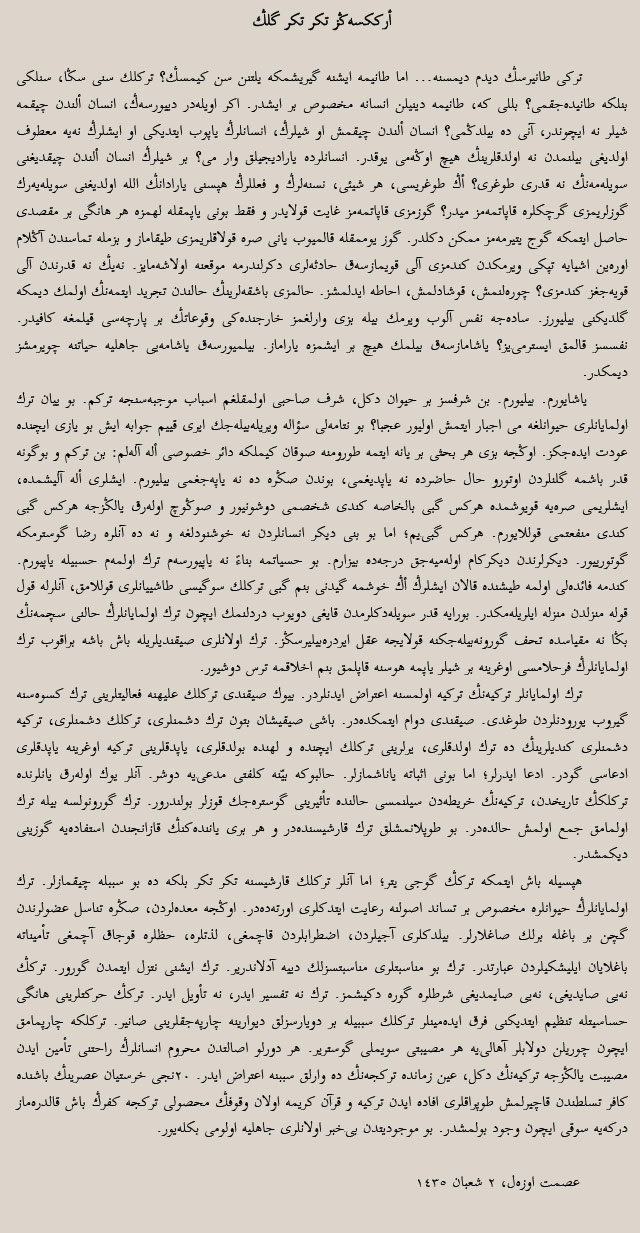 أرككسه‌ڭز تكر تكر گلڭ
تركی طانیرسڭ دیدم دیمسنه... اما طانیمه ایشنه گیریشمكه یلتنن سن كیمسڭ؟ ترك‌لك سنی سڭا، سنلكی
بنلكه طانیده‌جقمی؟ بللی كه، طانیمه دینیلن انسانه مخصوص بر ایشدر. اكر اویله‌در دییورسه‌ڭ، انسان ألندن چیقمه
شیلر نه ایچوندر، آنی ده بیلدڭمی؟ انسان ألندن چیقمش او شیلرڭ، انسانلرڭ یاپوب ایتدیكی او ایشلرڭ نه‌یه معطوف
اولدیغی بیلنمدن نه اولدقلرینڭ هیچ اوڭه‌می یوقدر. انسانلرده یارادیجیلق وار می؟ بر شیلرڭ انسان ألندن چیقدیغنی
سویله‌مه‌نڭ نه قدری طوغری؟ أڭ طوغریسی، هر شیئی، نسنه‌لرڭ و فعللرڭ هپسنی یارادانڭ الله اولدیغنی سویله‌یه‌رك
گوزلریمزی گرچكلره قاپاتمه‌مز میدر؟ گوزمزی قاپاتمه‌مز غایت قولایدر و فقط بونی یاپمقله لهمزه هر هانگی بر مقصدی
حاصل ایتمكه گوج یتیرمه‌مز ممكن دكلدر. گوز یوممقله قالمیوب یانی صره قولاقلریمزی طیقاماز و بزمله تماسندن آڭلام
اوره‌ین اشیایه تپكی ویرمكدن كندمزی آلی قویمازسه‌ق حادثه‌لری دكرلندرمه موقعنه اولاشه‌مایز. نه‌یڭ نه قدرندن آلی
قویه‌جغز كندمزی؟ چوره‌لنمش، قوشادلمش، احاطه ایدلمشز. حالمزی باشقه‌لرینڭ حالندن تجرید ایتمه‌نڭ اولمك دیمكه
گلدیكنی بیلیورز. ساده‌جه نفس آلوب ویرمك بیله بزی وارلغمز خارجنده‌كی وقوعاتڭ بر پارچه‌سی قیلمغه كافیدر.
نفسسز قالمق ایسترمی‌یز؟ یاشامازسه‌ق بیلمك هیچ بر ایشمزه یاراماز. بیلمیورسه‌ق یاشامه‌یی جاهلیه حیاتنه چویرمشز
دیمكدر.
یاشایورم. بیلیورم. بن شرفسز بر حیوان دكل، شرف صاحبی اولمقلغم اسباب موجبه‌سنجه تركم. بو بیان ترك
اولمایانلری حیوانلغه می اجبار ایتمش اولیور عجبا؟ بو نتامه‌لی سؤاله ویریله‌بیله‌جك ایری قییم جوابه ایش بو یازی ایچنده
عودت ایده‌جكز. اوڭجه بزی هر بحثی بر یانه ایتمه طورومنه صوقان كیملكه دائر خصوصی أله آله‌لم: بن تركم و بوگونه
قدر باشمه گلنلردن اوتورو حال حاضرده نه یاپدیغمی، بوندن صڭره ده نه یاپه‌جغمی بیلیورم. ایشلری أله آلیشمده،
ایشلریمی صره‌یه قویوشمده هركس گبی بالخاصه كندی شخصمی دوشونیور و صوڭوچ اوله‌رق یالڭزجه هركس گبی
كندی منفعتمی قوللایورم. هركس گبی‌یم؛ اما بو بنی دیكر انسانلردن نه خوشنودلغه و نه ده آنلره رضا گوسترمكه
گوتورییور. دیكرلرندن دیكركام اوله‌میه‌جق درجه‌ده بیزارم. بو حسیاتمه بناءً نه یاپیورسه‌م ترك اولمه‌م حسبیله یاپیورم.
كندمه فائده‌لی اولمه طیشنده قالان ایشلرڭ أڭ خوشمه گیدنی بنم گبی ترك‌لك سوگیسی طاشییانلری قوللامق، آنلرله قول
قوله منزلدن منزله ایلریله‌مكدر. بورایه قدر سویله‌دكلرمدن قایغی دویوب دردلنمك ایچون ترك اولمایانلرڭ حالنی سچمه‌نڭ
بڭا نه مقیاسده تحف گورونه‌بیله‌جكنه قولایجه عقل ایردره‌بیلیرسڭز. ترك اولانلری صیقندیلریله باش باشه براقوب ترك
اولمایانلرڭ فرحلامسی اوغرینه بر شیلر یاپمه هوسنه قاپلمق بنم اخلاقمه ترس دوشیور.
ترك اولمایانلر تركیه‌نڭ تركیه اولمسنه اعتراض ایدنلردر. بیوك صیقندی ترك‌لك علیهنه فعالیتلرینی ترك كسوه‌سنه
گیروب یورودنلردن طوغدی. صیقندی دوام ایتمكده‌در. باشی صیقیشان بتون ترك دشمنلری، ترك‌لك دشمنلری، تركیه
دشمنلری كندیلرینڭ ده ترك اولدقلری، یرلرینی ترك‌لك ایچنده و لهنده بولدقلری، یاپدقلرینی تركیه اوغرینه یاپدقلری
ادعاسی گودر. ادعا ایدرلر؛ اما بونی اثباته یاناشمازلر. حالبوكه بیّنه كلفتی مدعی‌یه دوشر. آنلر یوك اوله‌رق یانلرنده
ترك‌لكڭ تاریخدن، تركیه‌نڭ خریطه‌دن سیلنمسی حالنده تأثیرینی گوستره‌جك قوزلر بولندرور. ترك گورونولسه بیله ترك
اولمامق جمع اولمش حالده‌در. بو طوپلانمشلق ترك قارشیسنده‌در و هر بری یاننده‌كنڭ قازانجندن استفاده‌یه گوزینی
دیكمشدر.
هپسیله باش ایتمكه تركڭ گوجی یتر؛ اما آنلر ترك‌لك قارشیسنه تكر تكر بلكه ده بو سببله چیقمازلر. ترك
اولمایانلرڭ حیوانلره مخصوص بر تساند اصولنه رعایت ایتدكلری اورته‌ده‌در. اوڭجه معده‌لردن، صڭره تناسل عضولرندن
گچن بر باغله برلك صاغلارلر. بیلدكلری آجیلردن، اضطرابلردن قاچمغی، لذتلره، حظلره قوجاق آچمغی تأمیناته
باغلایان ایلیشكیلردن عبارتدر. ترك بو مناسبتلری مناسبتسزلك دییه آدلاندریر. ترك ایشنی نتزل ایتمدن گورور. تركڭ
نه‌یی صایدیغی، نه‌یی صایمدیغی شرطلره گوره دكیشمز. ترك نه تفسیر ایدر، نه تأویل ایدر. تركڭ حركتلرینی هانگی
حساسیتله تنظیم ایتدیكنی فرق ایده‌مینلر ترك‌لك سببیله بر دویارسزلق دیوارینه چارپه‌جقلرینی صانیر. ترك‌لكه چارپمامق
ایچون چوریلن دولابلر آهالی‌یه هر مصیبتی سویملی گوستریر. هر دورلو اصالتدن محروم انسانلرڭ راحتنی تأمین ایدن
مصیبت یالڭزجه تركیه‌نڭ دكل، عین زمانده تركجه‌نڭ ده وارلق سببنه اعتراض ایدر. ٢٠نجی خرستیان عصرینڭ باشنده
كافر تسلطندن قاچیرلمش طوپراقلری افاده ایدن تركیه و قرآن كریمه اولان وقوفڭ محصولی تركجه كفرڭ باش قالدره‌ماز
دركه‌یه سوقی ایچون وجود بولمشدر. بو موجودیتدن بی‌خبر اولانلری جاهلیه اولومی بكله‌یور.
عصمت اوزه‌ل، ٢ شعبان ١٤٣٥